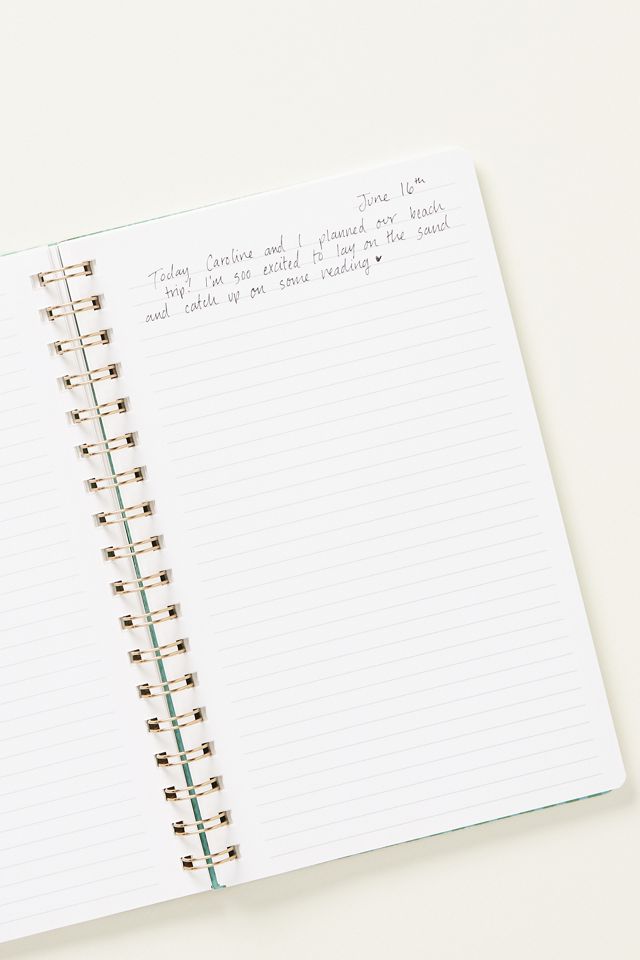 June 16th
Today Caroline and I planned our beach
trip! I'm soo excited to lay on the sand
and catch up on some reading ♥